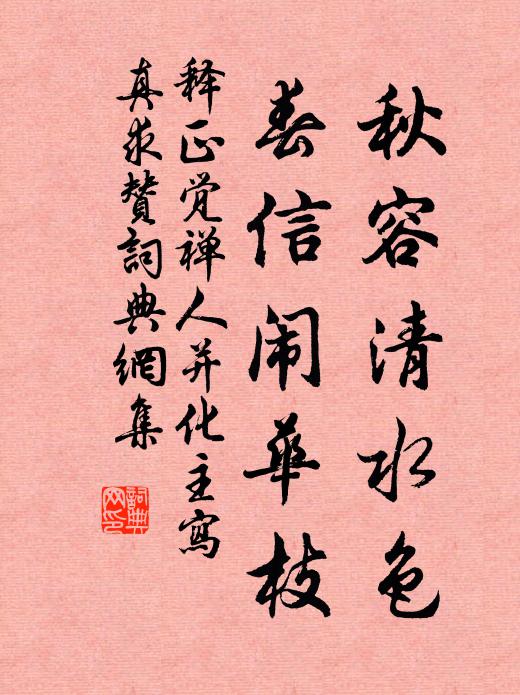 秋容清水色
春信闹華枝
释正觉禅人并化主寫
真求赞詞典網集
詞典网印